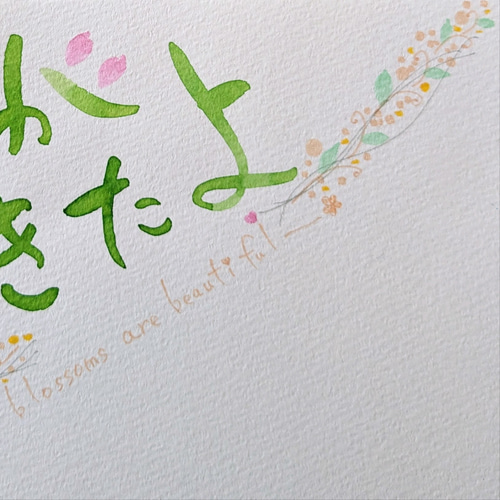 が
きたよ
blossoms are beautiful